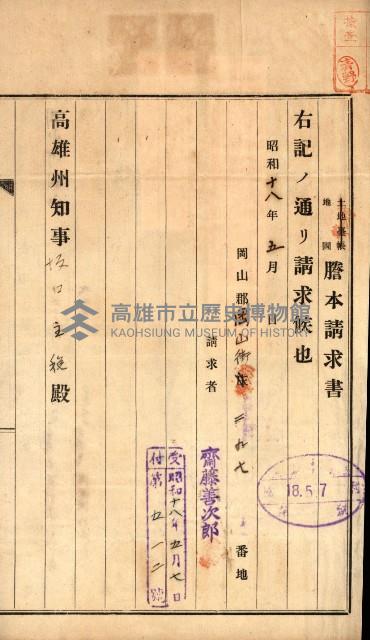 土地臺帳
地圖
謄本請求書
右記ノ通リ請求候也
昭和十八年五月 日
岡山郡岡山街 二九七 番地
請求者
齋藤善次郎
高雄州知事坂口主税殿
受昭和十八年五月七日
付第五一二號
18.5.7
高雄市立歷史博物館
KAOHSIUNG MUSEUM OF HISTORY